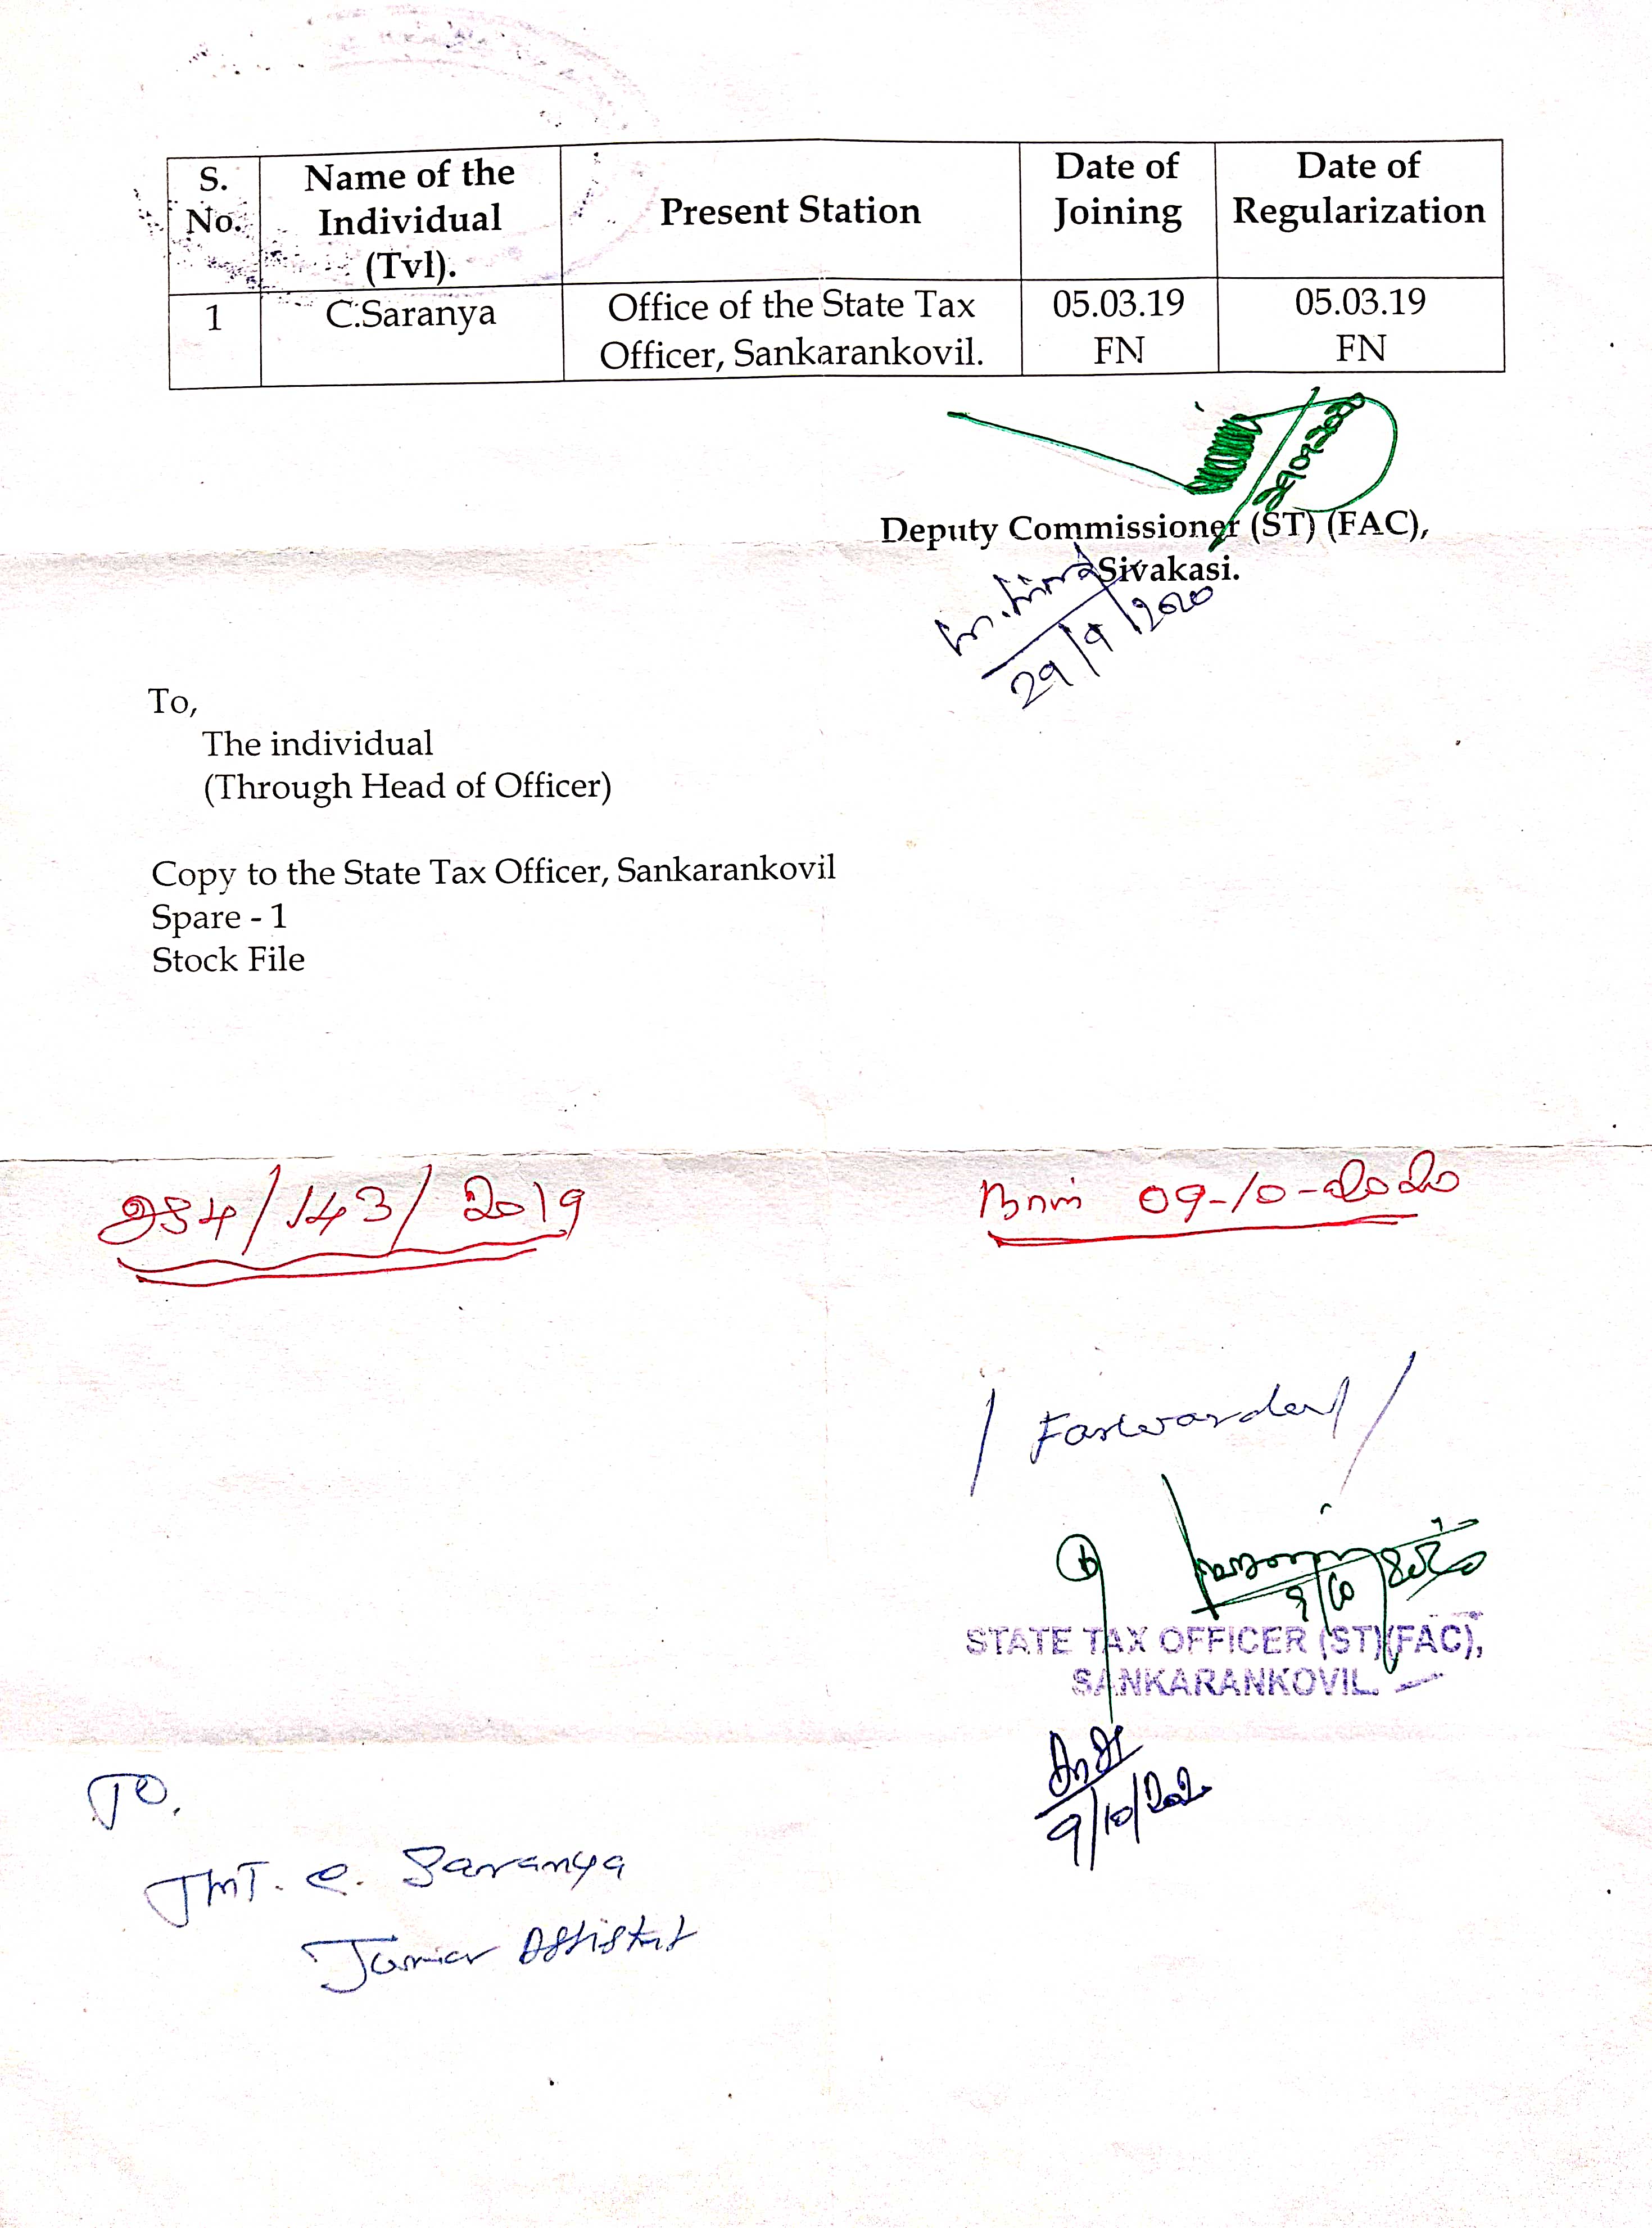 S. No. Name of the Individual (Tvl). Present Station Date of Joining Date of Regularization
1 C.Saranya Office of the State Tax Officer, Sankarankovil. 05.03.19 FN 05.03.19 FN
Deputy Commissioner (ST) (FAC),
Sivakasi.
29/9/2020
To,
The individual
(Through Head of Officer)
Copy to the State Tax Officer, Sankarankovil
Spare - 1
Stock File
/143/2019
நாள் 09-10-2020
/ Forwarded /
9/10/2020
STATE TAX OFFICER (ST)(FAC),
SANKARANKOVIL.
9/10/2020
To,
TMT. C. Saranya
Junior Assistant